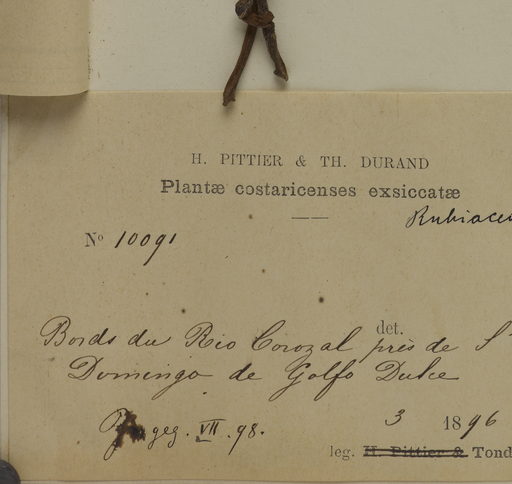 H. PITTIER & TH. DURAND
Plantæ costaricenses exsiccatæ
Rubiacee
Nº 10091
det.
Bords du Rio Corozal près de Sº
Domingo de Golfo Dulce
geg. VII. 98.
3 1896
leg. H. Pittier & Tond